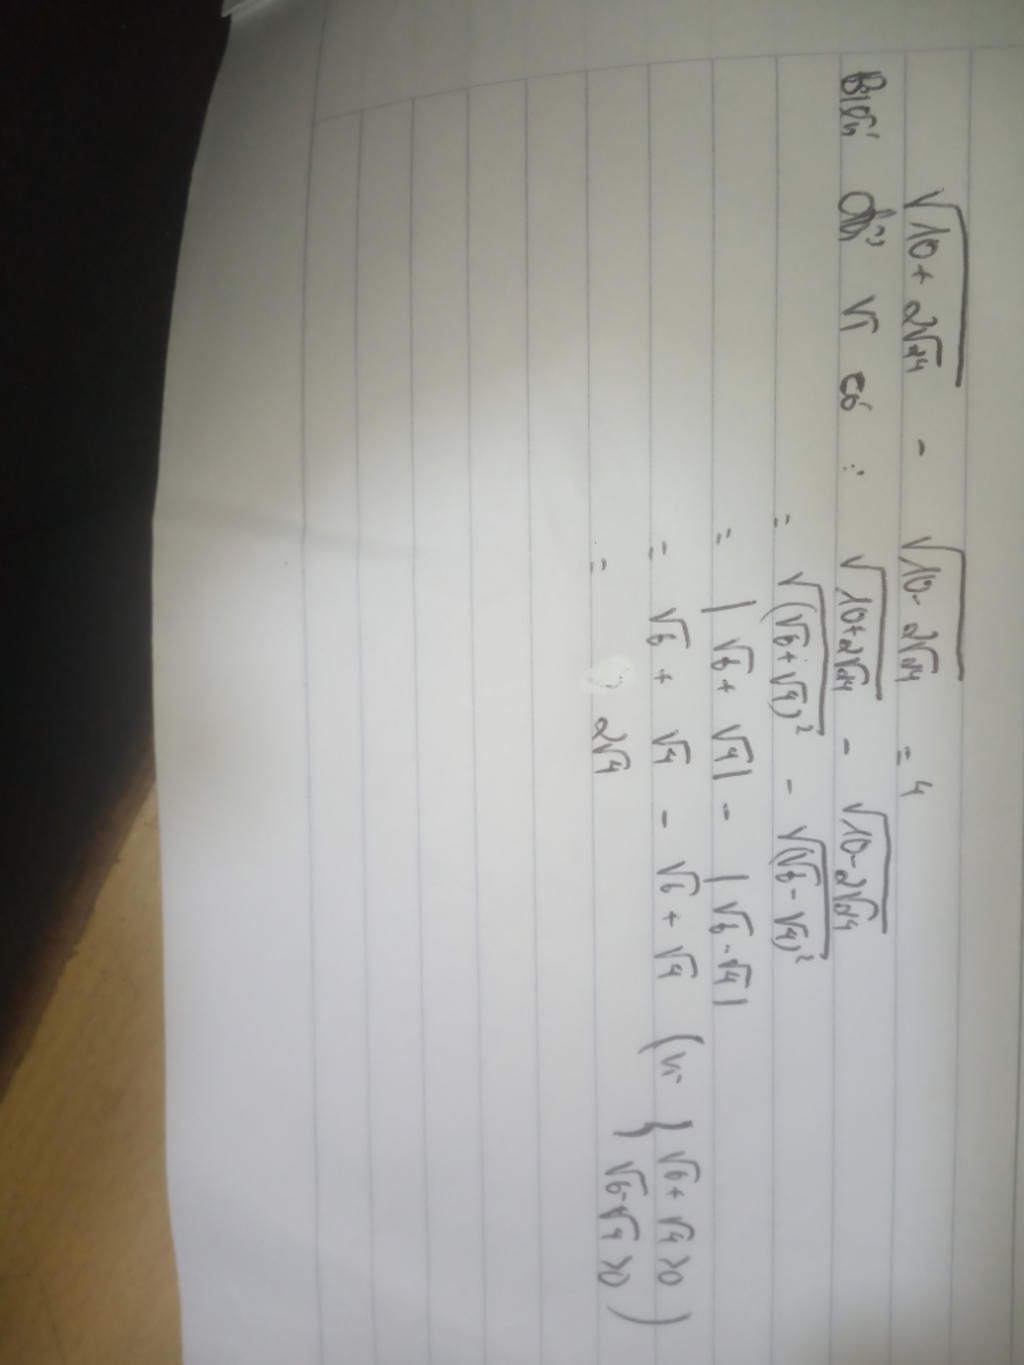 √(10+2√24) - √(10-2√24) = 4
Biến đổi VT có : √(10+2√24) - √(10-2√24)
= √((√6+√4)²) - √((√6-√4)²)
= |√6+√4| - |√6-√4|
= √6 + √4 - √6 + √4 (vì { √6+√4>0
= 2√4 √6-√4>0 )